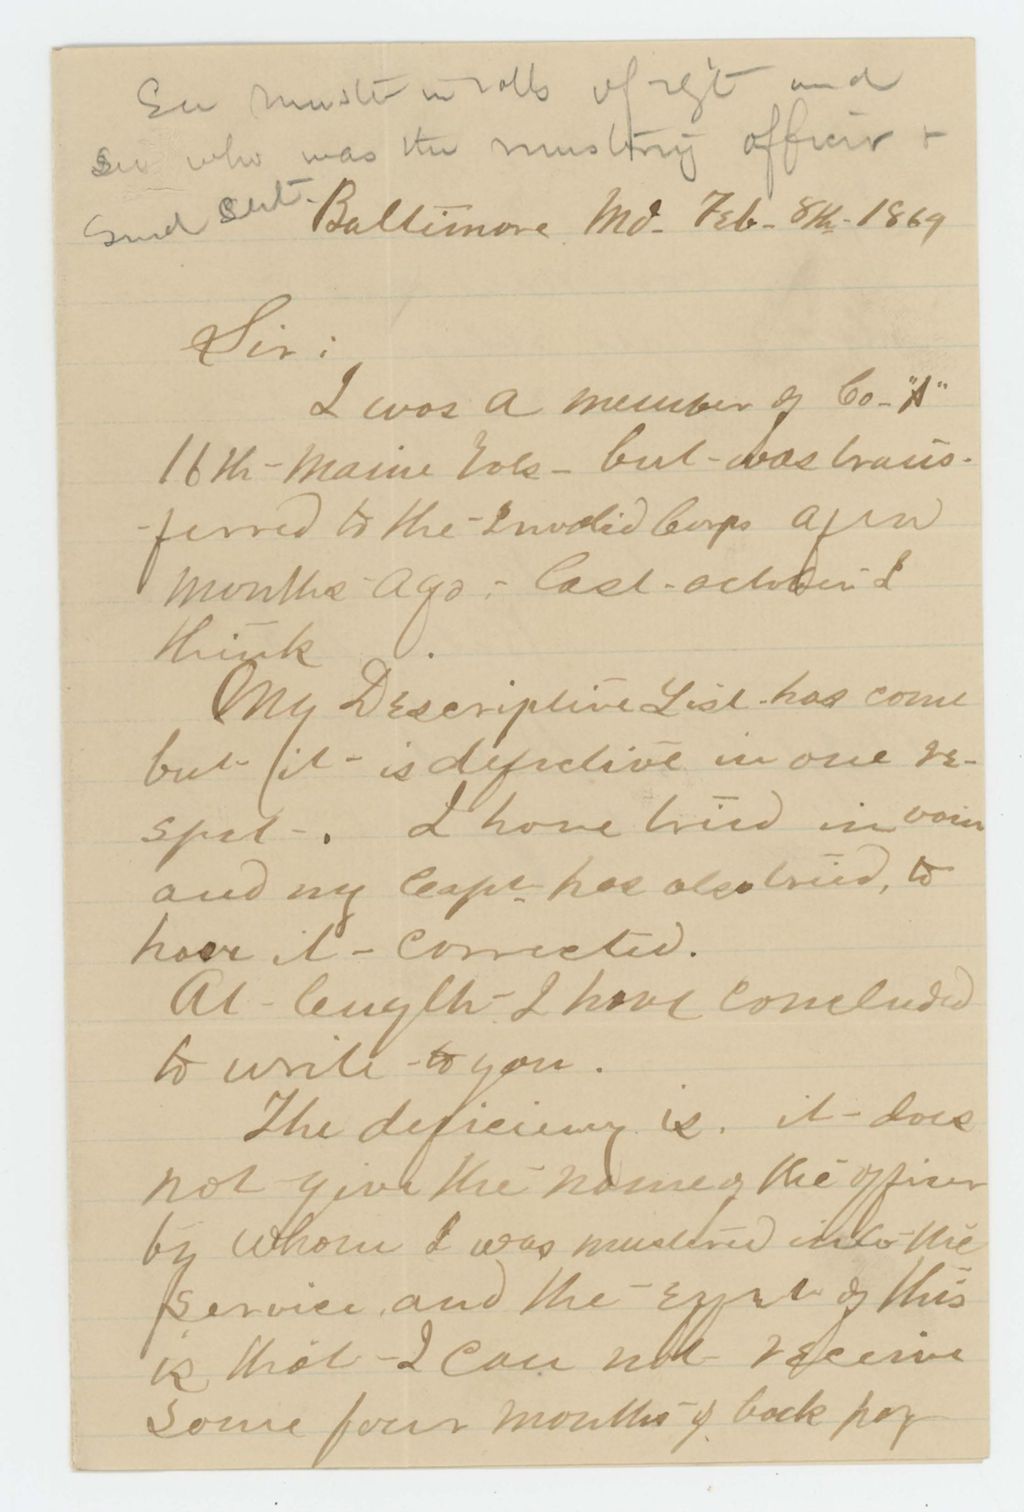 See muster in rolls of regt and
see who was the mustering officer &
Send Stat.
Baltimore Md. Feb. 8th 1864
Sir:
I was a member of Co. "A"
16th Maine Vols. but was trans-
ferred to the Invalid Corps a few
months ago; last october I
think.
My Descriptive List has come
but it is defective in one re-
spect. I have tried in vain
and my Capt. has also tried, to
have it corrected.
At length I have concluded
to write to you.
The deficiency is, it does
not give the name of the officer
by whom I was mustered into the
service and the effect of this
is that I can not receive
some four months of back pay